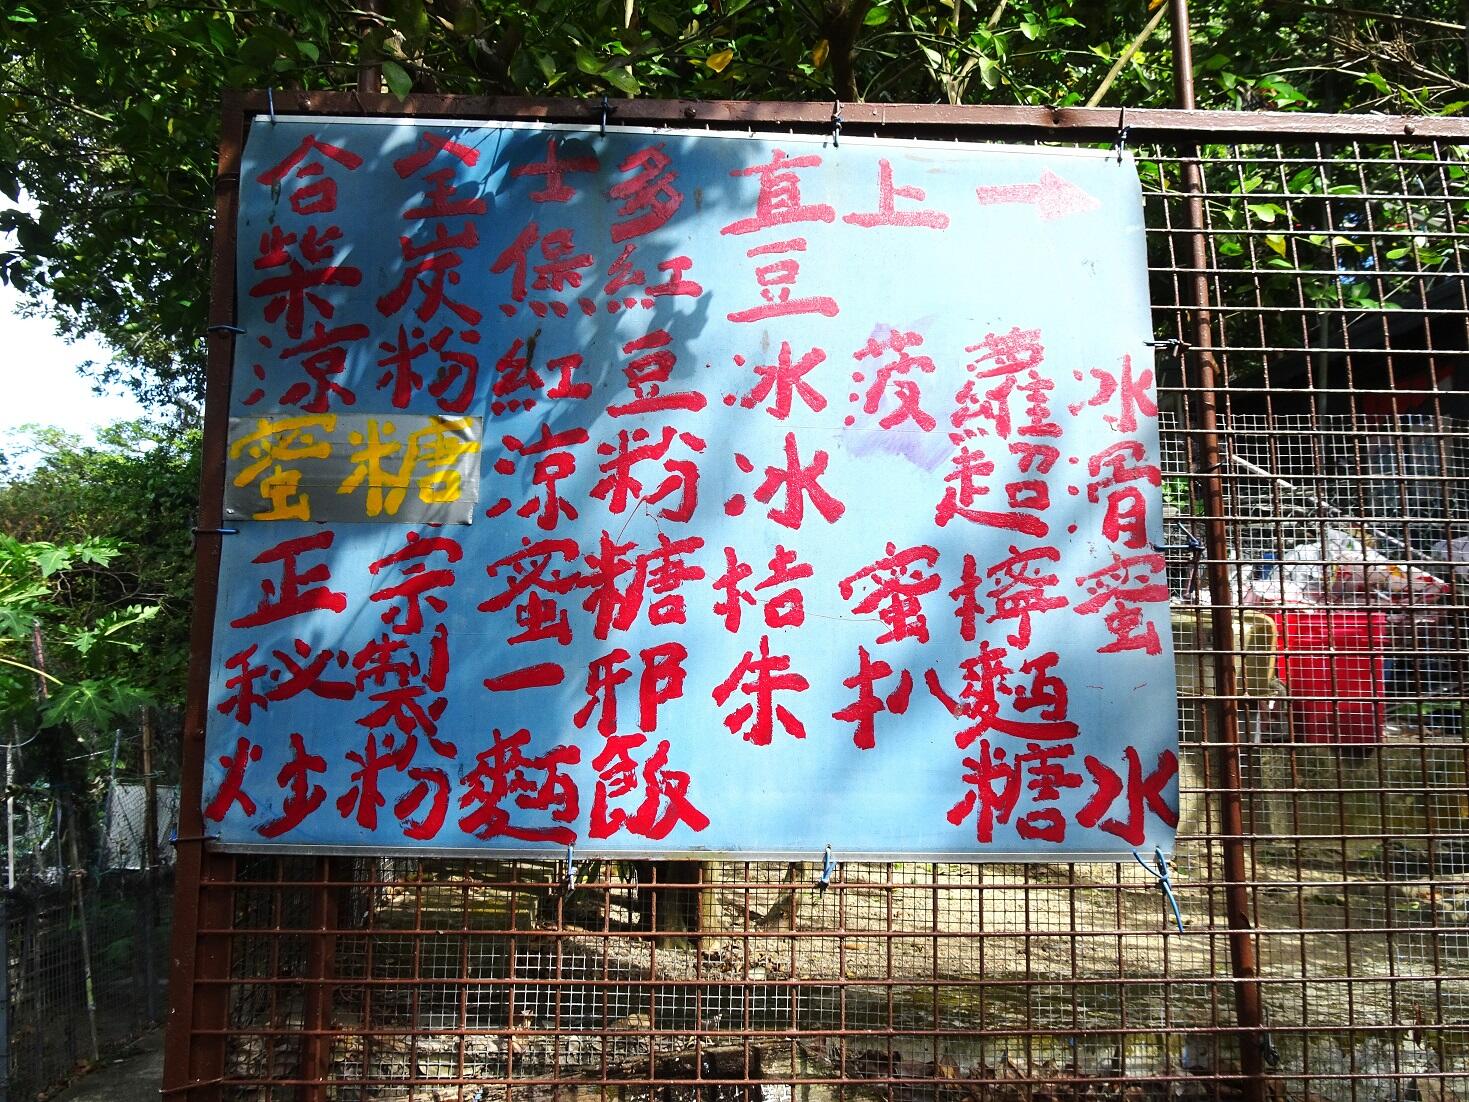 合全士多 直上→
柴炭煲紅豆
涼粉 紅豆冰 菠蘿冰
蜜糖 涼粉冰 超滑
正宗 蜜糖桔蜜檸蜜
秘製一邪朱扒麵
炒粉麵飯 糖水